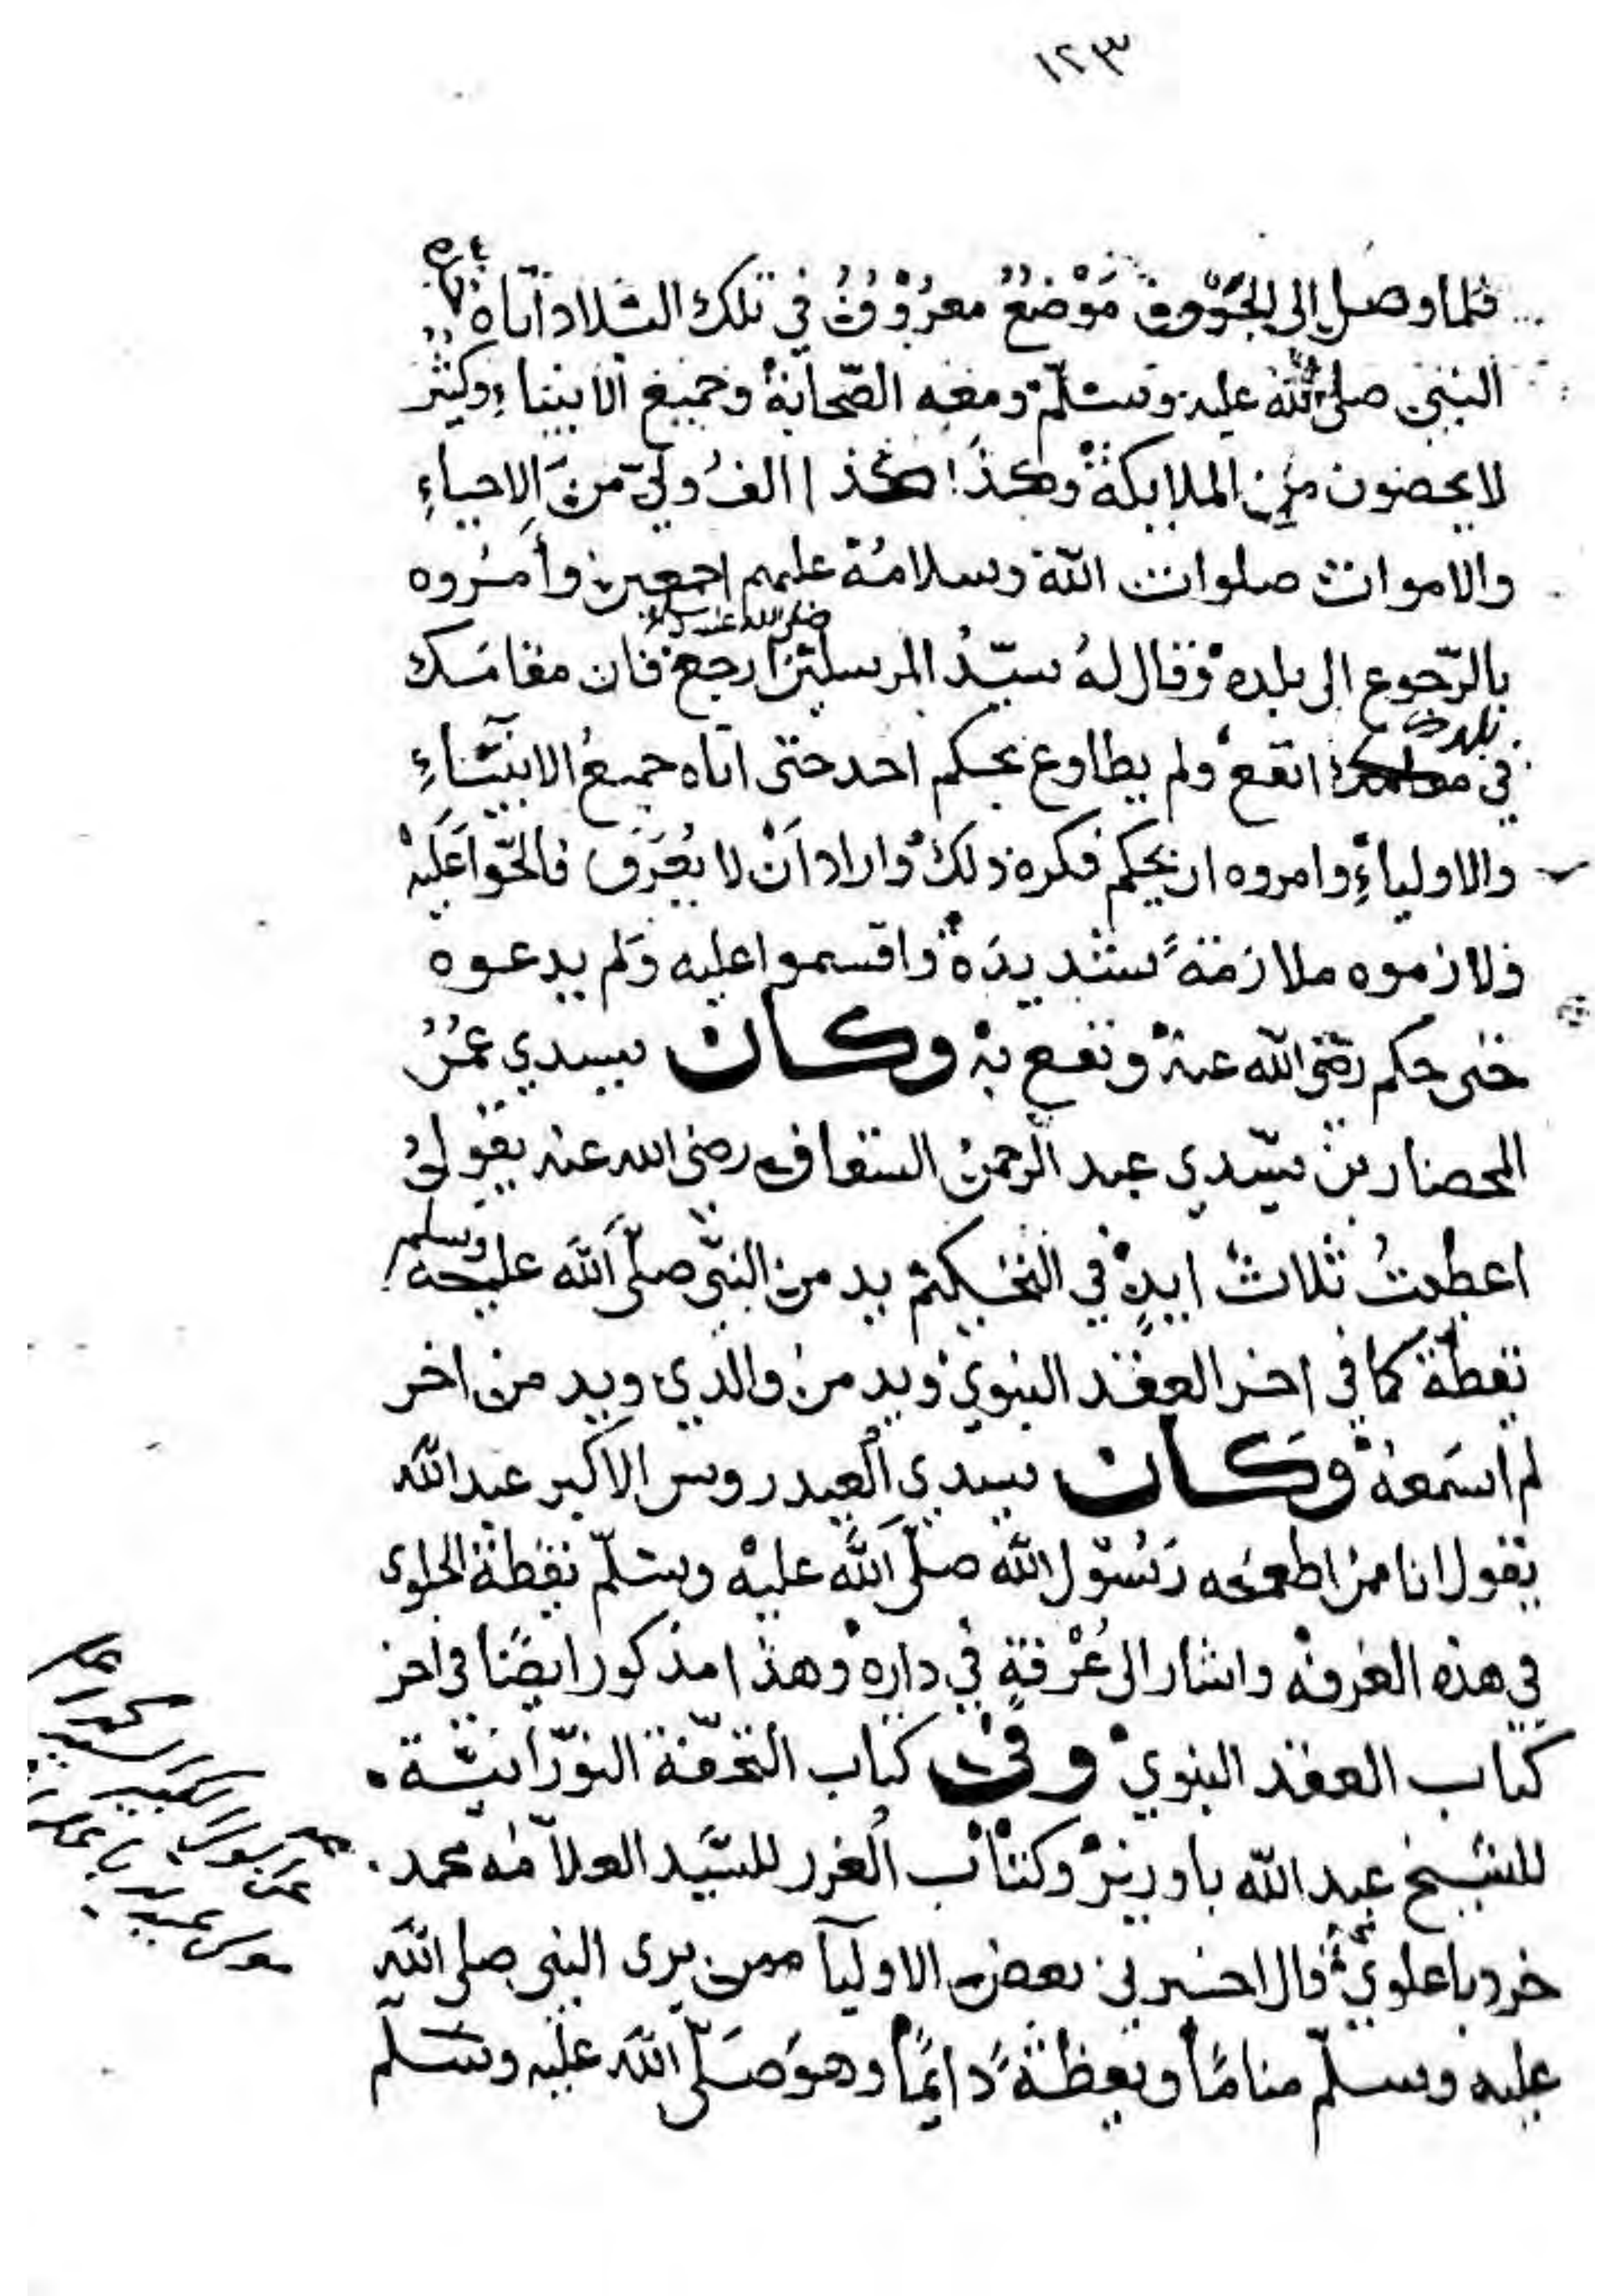 ١٢٣
فلما وصل الى الجَوْف مَوْضعٌ معرُوْفٌ في تلك البلاد اتاه
النبي صلى الله عليه وسلّم ومعه الصّحابة وجميع الانبياءِ وكثير
لا يحصون من الملايكة وكذا كذا الفُ وليّ منَ الاحياءِ
والاموات صلوات الله وسلامُه عليهم اجمعين وأمَروه
بالرّجوع الى بلده وقال لهُ سيّدُ المرسلين صلى الله عليه وسلم ارجع فان مقامَك
في بلدك انفع ولم يطاوع بحكم احد حتى اتاه جميعُ الانبيَاءِ
والاولياءِ وامروه ان يحكم فكره ذلك واراد اَنْ لا يُعْرَف فالحّوا عَليْه
ولازموه ملازمَةً شديدَة واقسموا عليه وَلم يدعوه
حتى حكم رضي الله عنه ونفع به وكان سيدي عمرُ
المحضار بن سيّدي عبد الرحمن السقاف رضي الله عنه يقولُ
اعطيتُ ثلاث ايدٍ في التحكيم يد من النبيّ صلّى اللّه عليه وسلم
يقظة كما في اخر العقد النبوي ويد من والدي ويد من اخر
لم اسَمعهُ وكان سيدي العيدروس الاكبر عبد الله
يقول انا ممن اطعمه رَسُوْل الله صلّى اللّه عليْه وسلّم يقظة الحلوى
في هذه الغرفه واشار الى غُرْفةٍ في داره وهذا مذكور ايضًا في اخر
كتاب العقد النبوي وفي كتاب التحفة النوْرَانيّة
للشيخ عبد الله باوزير وكتاب الغرر للسَّيد العلاّمه محمد
خرد باعلوي قال اخبرني بعض الاوليآ ممن يرى النبي صلى الله
عليه وسلّم منامًا ويقظةً دايمًا وهوَ صَلّى الله عليه وسَلّم